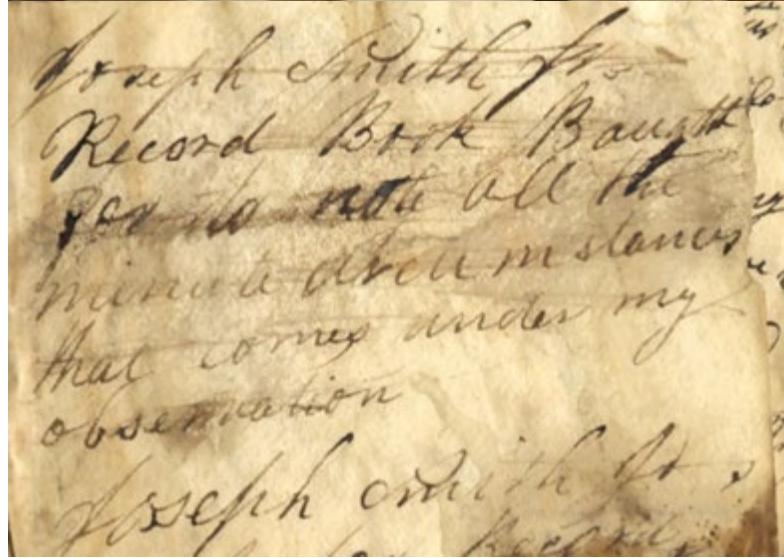 Joseph Smith Jr.
Record Book Baught
for to note all the
minute circumstances
that comes under my
observation
Joseph Smith Jr s
Record